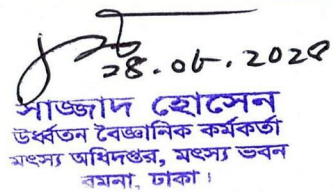 28.০৮.202৪
সাজ্জাদ হোসেন
উর্ধ্বতন বৈজ্ঞানিক কর্মকর্তা
মৎস্য অধিদপ্তর, মৎস্য ভবন
রমনা, ঢাকা।